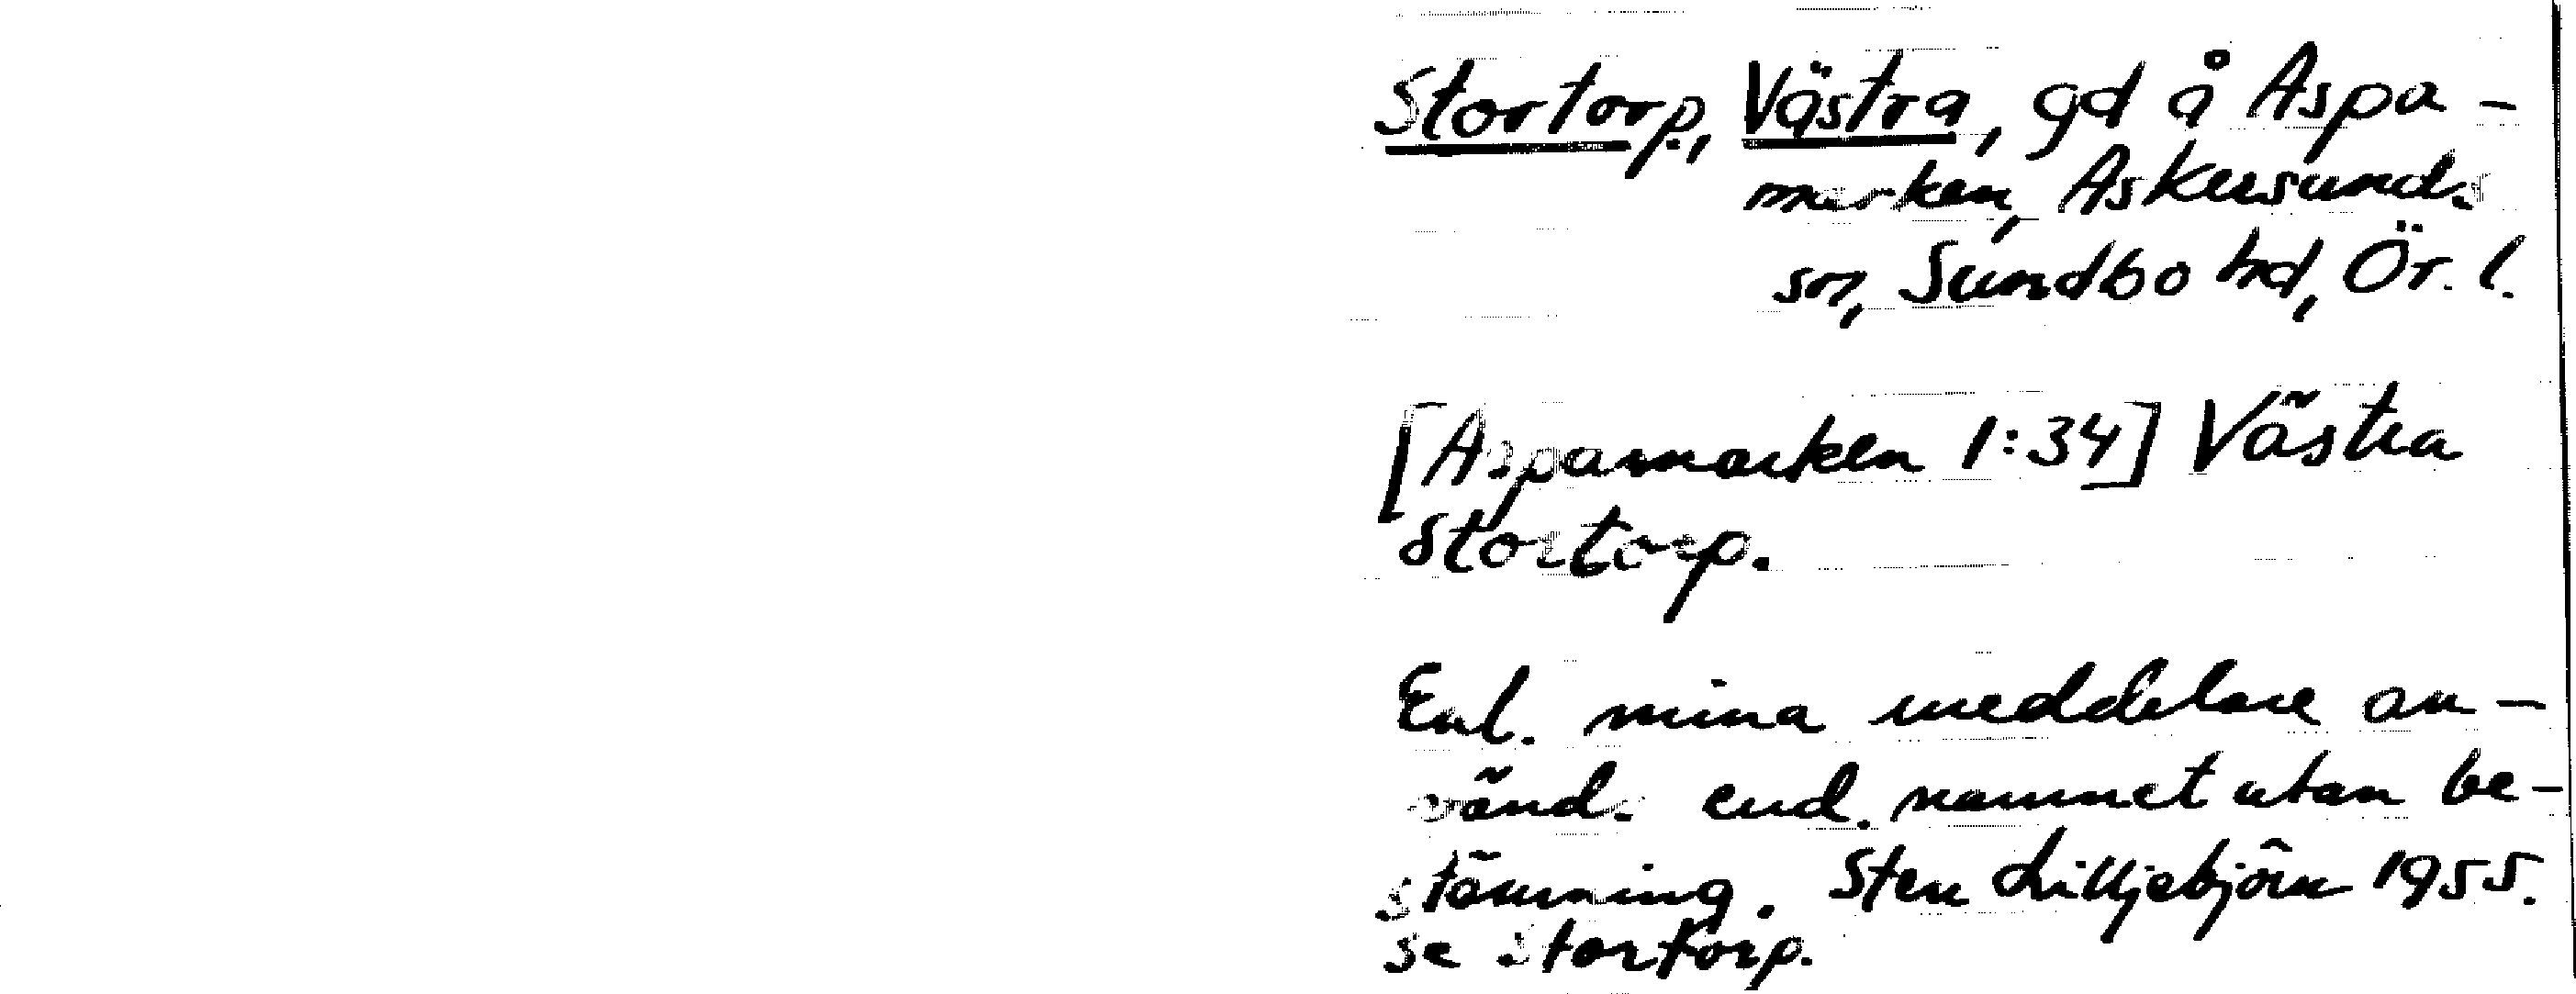 Stortorp, Västra, gd å Aspa-
marken, Askersunds
sn, Sundbo hd, Ör. l.
[Aspamarken 1:34] Västra
Stortorp.
Enl. mina meddelare an-
vänd. end. namnet utan be-
stämning. Sten Lilljebjörn 1955.
se Stortorp.